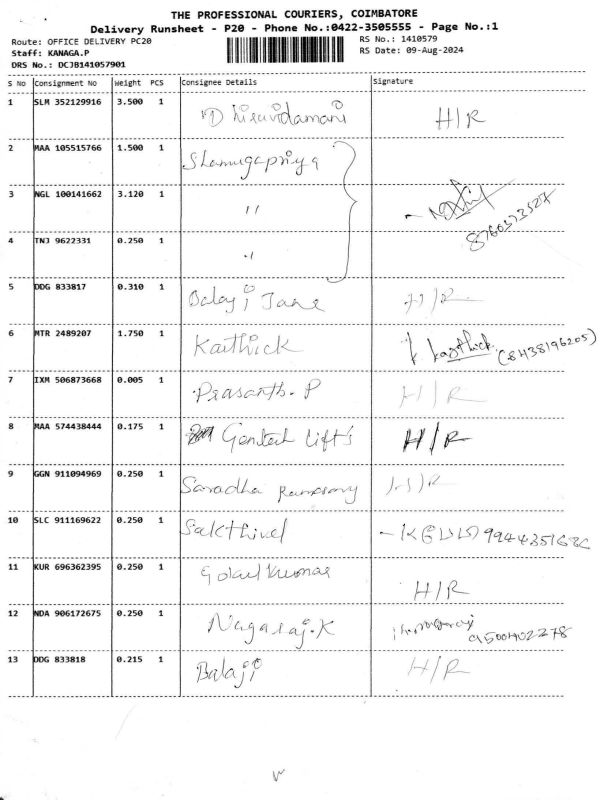 THE PROFESSIONAL COURIERS, COIMBATORE
Delivery Runsheet - P20 - Phone No.:0422-3505555 - Page No.:1
Route: OFFICE DELIVERY PC20 RS No.: 1410579
Staff: KANAGA.P RS Date: 09-Aug-2024
DRS No.: DCJB141057901
S No Consignment No Weight PCS Consignee Details Signature
1 SLM 352129916 3.500 1 H/R
2 MAA 105515766 1.500 1 Shanmugapriya
3 NGL 100141662 3.120 1 "
4 TNJ 9622331 0.250 1 "
5 DDG 833817 0.310 1 Balaji Jane H/R
6 MTR 2489207 1.750 1 Karthick k. Karthick (8438196205)
7 IXM 506873668 0.005 1 Prasanth. P H/R
8 MAA 574438444 0.175 1 Gentech Lift's H/R
9 GGN 911094969 0.250 1 Saradha H/R
10 SLC 911169622 0.250 1 Sakthivel
11 KUR 696362395 0.250 1 Gokul Kumar H/R
12 NDA 906172675 0.250 1 Nagaraj.K 9500402278
13 DDG 833818 0.215 1 Balaji H/R